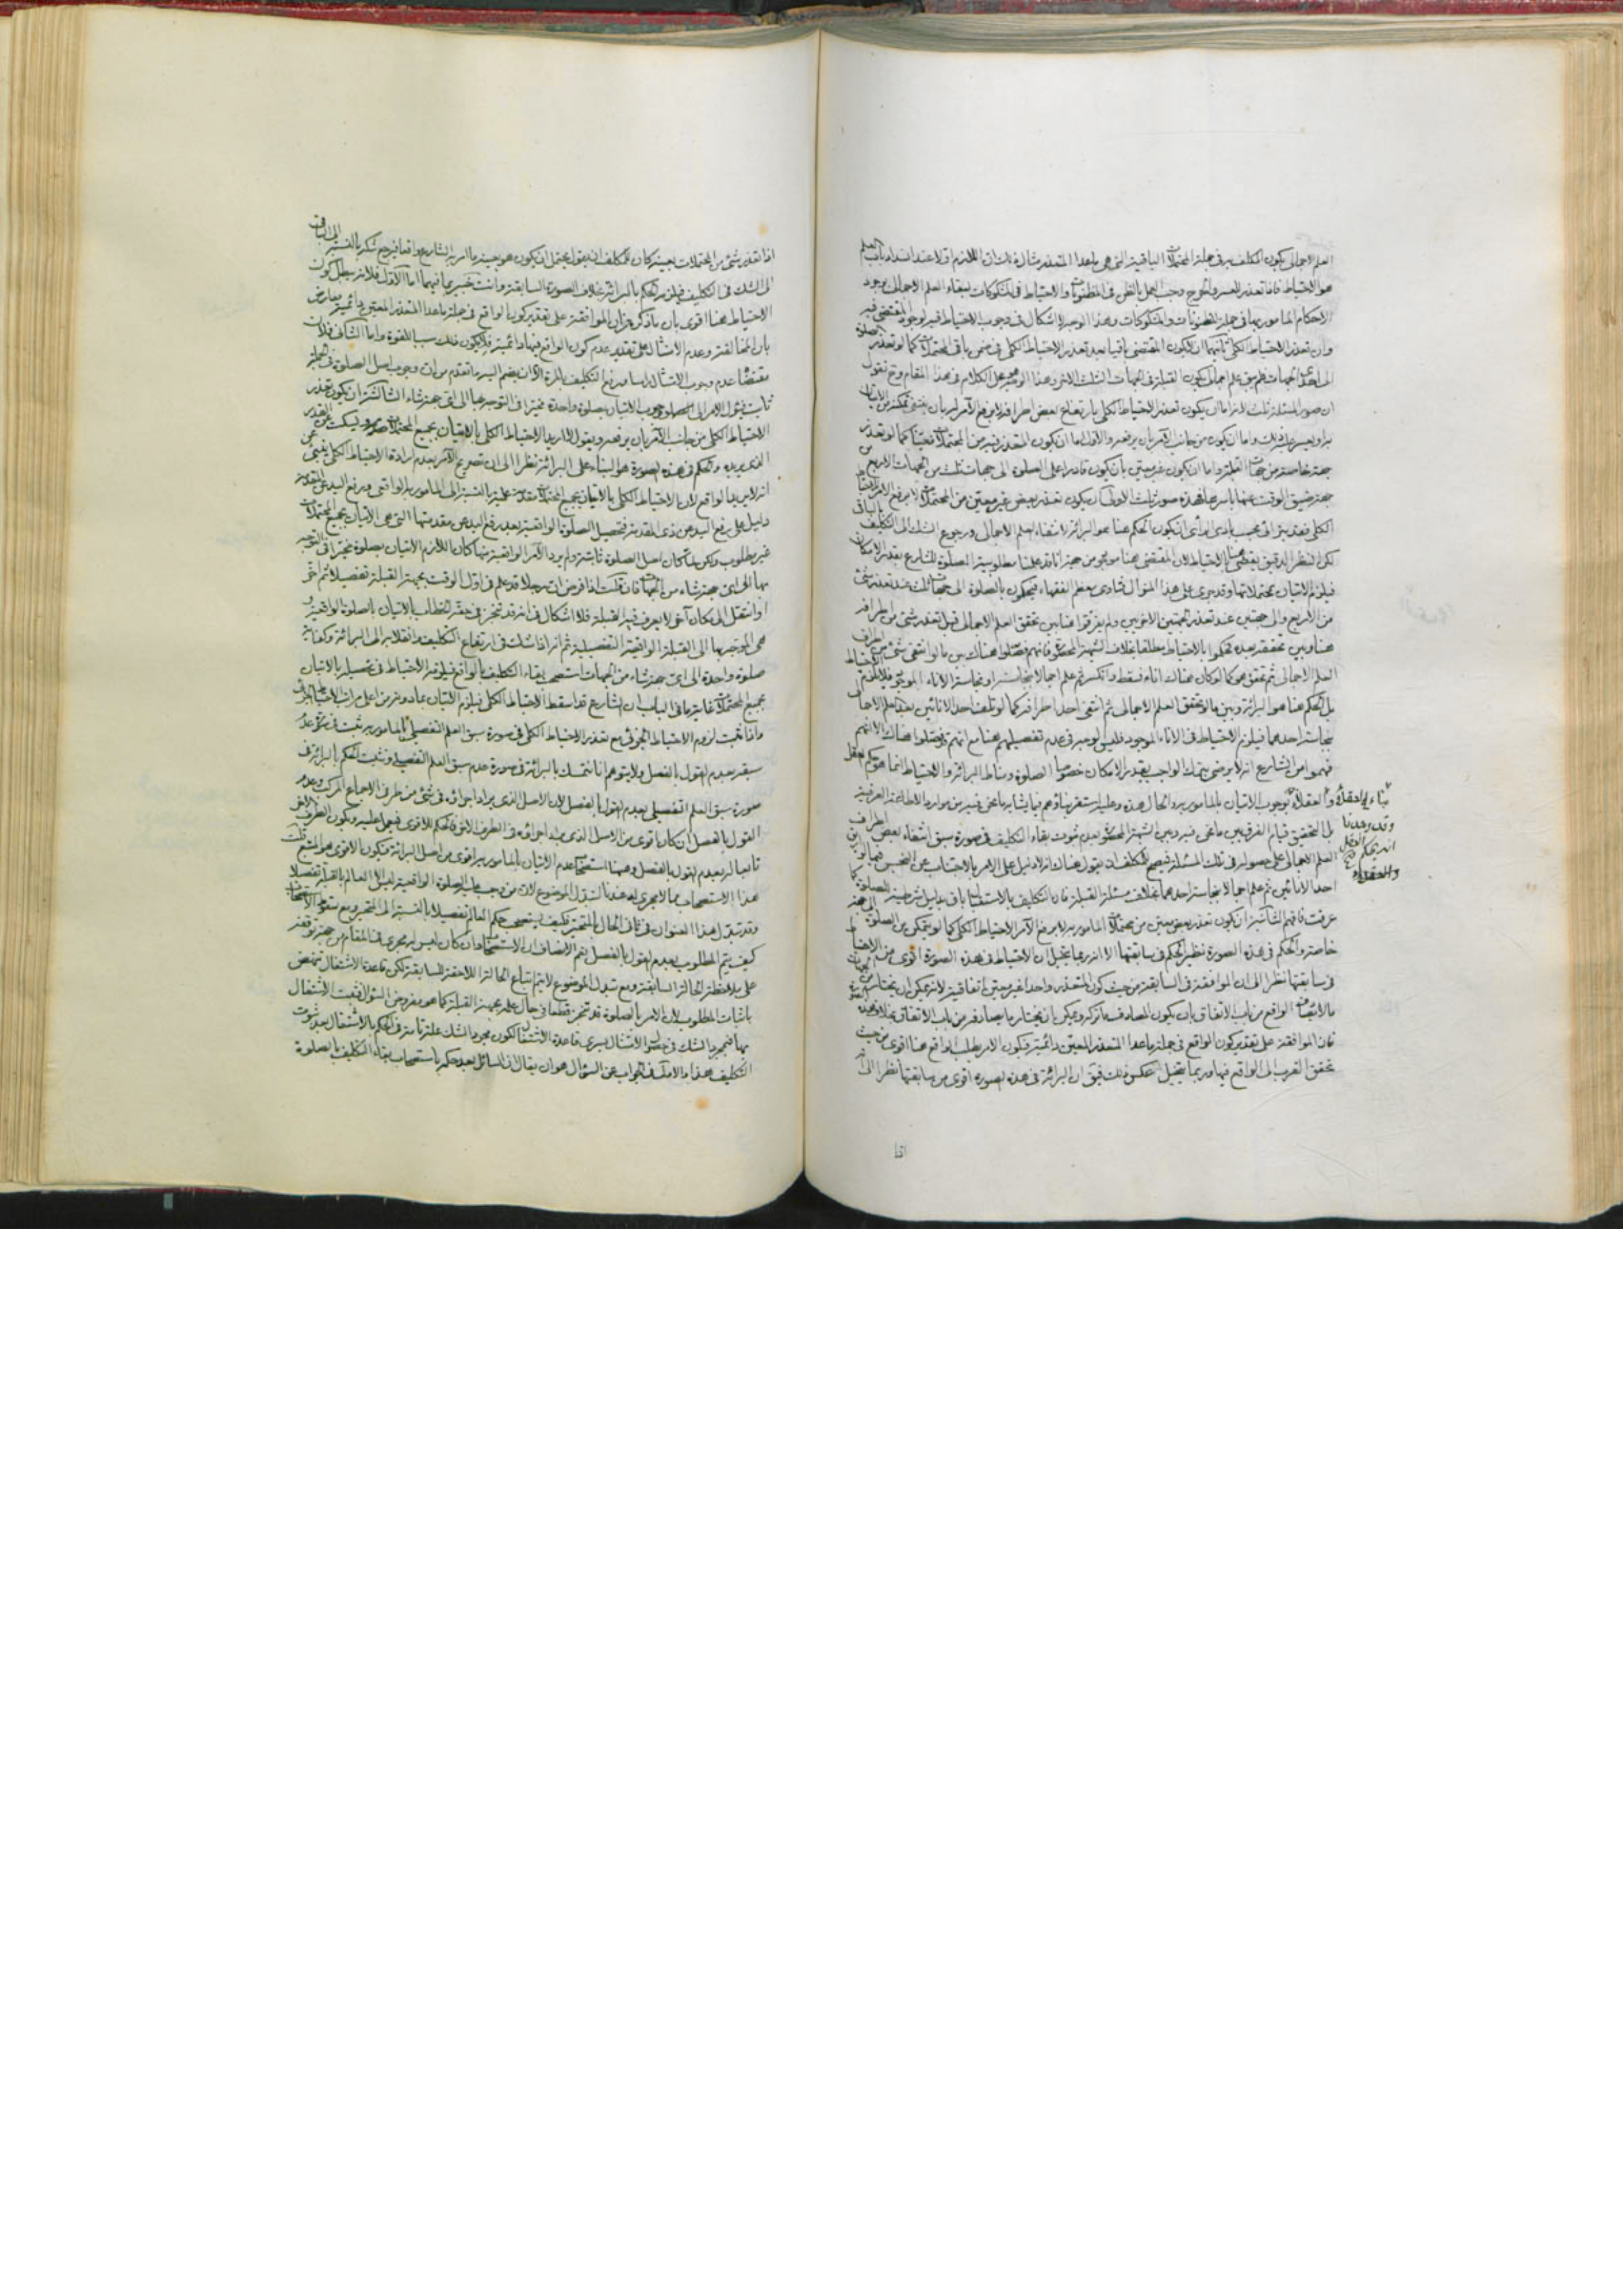 العلم الاجمالى بكون المكلف به فى جملة المحتملات الباقية التى هى ما عدا المتعذر
هو الاحتياط فاذا تعذر للعسر والحرج وجب العمل بالظن فى المظنونات والاحتياط فى المشكوكات لبقاء العلم الاجمالى بوجود
الاحكام المامور بها فى جملة المظنونات والمشكوكات وهذا الوجه لا اشكال فى وجوب الاحتياط فيه لوجود المقتضى فيه
وان تعذر الاحتياط الكلى ثانيهما ان لا يكون المقتضى باقيا بعد تعذر الاحتياط الكلى فى ضمن باقى المحتملات كما لو تعذر الصلوة
الى احدى الجهات فلم يبق علم اجمالى بكون القبلة فى الجهات الثلث الاخر وهذا الوجه محل الكلام فى هذا المقام وح نقول
ان صور المسئلة ثلث لانه اما ان يكون تعذر الاحتياط الكلى بارتفاع بعض اطرافه لا برفع الآمر له بان ينتفى تمكنه من الاتيان
به او يعسر عليه ذلك واما ان يكون من جانب الآمر بان يرفعه والاول اما ان يكون المتعذر فيه من المحتملات معينا كما لو تعذر
جهة خاصة من جهات القبلة واما ان يكون غير معين بان يكون قادرا على الصلوة الى جهات ثلث من الجهات الاربع
جهة ضيق الوقت عنها باسرها فهذه صور ثلث الاولى ان يكون تعذر بعض غير معين من المحتملات لا برفع الامر الاحتياط
الكلى فقد يترائى بحسب بادى الراى ان يكون الحكم هنا هو البرائة لانتفاء العلم الاجمالى ورجوع الشك الى التكليف بالباقى
لكن النظر الدقيق يقتضى هنا بالاحتياط لان المقتضى هنا موجود من جهة انا قد علمنا مطلوبية الصلوة للشارع بقدر الامكان
فيلزم الاتيان بمحتملاتها وقد جرى على هذا المنوال فتاوى معظم الفقهاء فيحكمون بالصلوة الى جهات ثلث عند تعذر شئ
من الاربع والى جهتين عند تعذر الجهتين الاخريين ولم يفرقوا هنا بين تحقق العلم الاجمالى قبل تعذر شئ من اطرافه
هنا وبين تحققه بعده فحكموا بالاحتياط مطلقا بخلاف الشبهة المحصورة فانهم فصلوا هناك بين ما لو انتفى شئ من اطراف
العلم الاجمالى ثم تحقق هو كما لو كان هناك اناء فسقط وانكسر ثم علم اجمالا بنجاسته او نجاسة الاناء الموجود فلا يلزم الاحتياط
بل الحكم هنا هو البرائة وبين ما لو تحقق العلم الاجمالى ثم انتفى احد اطرافه كما لو تلف احد الانائين بعد العلم الاجمالى
بنجاسة احدهما فيلزم الاحتياط فى الاناء الموجود فليس الوجه فى عدم تفصيلهم هنا مع انهم يفصلوا هناك الا انهم
فهموا من الشارع انه لا يرضى بترك الواجب بقدر الامكان خصوصا الصلوة ومناط البرائة والاحتياط انما هو حكم العقل
بناء العقلاء والعقلاء بوجوب الاتيان بالمامور به والحال هذه وعليه استقر بناؤهم فيما يشابه ما نحن فيه من موارد الاطاعة العرفية
وقد وجدنا
انه يحكم العقل
والعقلاء
بل التحقيق قيام الفرق بين ما نحن فيه وبين الشبهة المحصورة بعدم ثبوت بقاء التكليف فى صورة سبق انتفاء بعض اطراف
العلم الاجمالى على حصوله فى تلك المسئلة فيصح للمكلف ان يقول هناك انه لا دليل على الامر بالاجتناب عن النجس فيما بين
احد الانائين ثم علم اجمالا بنجاسة احدهما بخلاف مسئلة القبلة فان التكليف بالاستقبال باق بدليل شرطيته للصلوة كما
عرفت فافهم الثانية ان يكون تعذر بعض معين من محتملات المامور به لا برفع الآمر الاحتياط الكلى كما لو لم يتمكن من الصلوة الى جهة
خاصة والحكم فى هذه الصورة نظير الحكم فى سابقتها الا انه ربما يتخيل ان الاحتياط فى هذه الصورة اقوى من الاحتياط
فى سابقتها نظرا الى ان الموافقة فى السابقة من حيث كون المتعذر واحدا غير معين اتفاقية لانه يمكن ان يختار من الجهات
ما لا يتفق الواقع من باب الاتفاق بان يكون المصادف ما تركه ويمكن ان يختار ما يصادفه من باب الاتفاق بخلاف هذه الصورة
فان الموافقة على تقدير كون الواقع فى جملة ما عدا المتعذر المعين دائمية فيكون الامر بطلب الواقع هنا اقوى من حيث
تحقق القرب الى الواقع فيها وربما يتخيل عكس ذلك فيق ان البرائة فى هذه الصورة اقوى من سابقتها نظرا الى انه
اذا
اذا تعذر شئ من المحتملات بعينه كان للمكلف ان يقول يحتمل ان يكون هو بعينه ما امر به الشارع واقعا فيرجع شكه بالنسبة الى الباقى
الى الشك فى التكليف فيلزمه الحكم بالبرائة بخلاف الصورة السابقة وانت خبير بما فيهما اما الاول فلانه جعل كون
الاحتياط هنا اقوى بان ما ذكره من ان الموافقة على تقدير كون الواقع فى جملة ما عدا المتعذر المعين دائمية معارض
بان المخالفة وعدم الامتثال على تقدير عدم كون الواقع فيها دائمية فلا يكون ذلك سببا للقوة واما الثانى فلان
مقتضاه عدم وجوب الامتثال راسا مع ان التكليف بالمرة الا ان يضم اليه ما تقدم من ان وجوب اصل الصلوة فى الجملة
ثابت فيئول الامر الى وجوب الاتيان بصلوة واحدة مخيرا فى التوجه بها الى اى جهة شاء الثالثة ان يكون تعذر
الاحتياط الكلى من جانب الآمر بان يرفعه ويقول لا اريد الاحتياط الكلى بالاتيان بجميع المحتملات ويسكت عن القدر
الذى يريده والحكم فى هذه الصورة هو البناء على البرائة نظرا الى ان تصريح الآمر بعدم ارادة الاحتياط الكلى يغنى عن
انه لا يريد الواقع لان الاحتياط الكلى بالاتيان بجميع المحتملات مقدمة علمية بالنسبة الى المامور به الواقعى ورفع اليد عن المقدمة
دليل على رفع اليد عن ذى المقدمة فتحصيل الصلوة الواقعية بعد رفع اليد عن مقدمتها التى هى الاتيان بجميع المحتملات
غير مطلوب ولكن لما كان اصل الصلوة ثابتة ولم يرد الآمر الواقعية منها كان اللازم الاتيان بصلوة مخيرا فى التوجه
بها الى اى جهة شاء من الجهات فان قلت اذا فرض ان رجلا قد علم فى اول الوقت بجهة القبلة تفصيلا ثم اعمى
او انتقل الى مكان آخر لا يعرف فيه القبلة فلا اشكال فى انه قد تنجز فى حقه الخطاب بالاتيان بالصلوة الواقعية و
هى المتوجه بها الى القبلة الواقعية التفصيلية ثم انه اذا شك فى ارتفاع التكليف وانقلابه الى البرائة وكفاية
صلوة واحدة الى اى جهة شاء من الجهات استصحب بقاء التكليف بالواقع فيلزمه الاحتياط فى تحصيله بالاتيان
بجميع المحتملات غاية ما فى الباب ان الشارع قد اسقط الاحتياط الكلى فيلزم الاتيان بما دونه من اعلى مراتب الاحتياط الجزئى
واذا ثبت لزوم الاحتياط الجزئى مع تعذر الاحتياط الكلى فى صورة سبق العلم التفصيلى بالمامور به ثبت فى صورة عدم
سبقه بعدم القول بالفصل ولا يتوهم انا نتمسك بالبرائة فى صورة عدم سبق العلم التفصيلى ونثبت الحكم بالبرائة فى
صورة سبق العلم التفصيلى بعدم القول بالفصل لان الاصل الذى يراد اجراؤه فى شئ من طرفى الاجماع المركب وعدم
القول بالفصل ان كان اقوى من الاصل الذى يراد اجراؤه فى الطرف الآخر فالحكم للاقوى فيعمل عليه ويكون الطرف الآخر
تابعا له بعدم القول بالفصل وهيهنا استصحاب عدم الاتيان بالمامور به اقوى من اصل البرائة فيكون الاقوى هو المتبع قلت
هذا الاستصحاب مما لا مجرى له هنا لتبدل الموضوع لان من وجب عليه الصلوة الواقعية ليس الا العالم بالقبلة تفصيلا
وقد تبدل هذا العنوان فى ثانى الحال بالمتحير فكيف يستصحب حكم العالم تفصيلا بالنسبة الى المتحير ومع سقوط الاستصحاب
كيف يتم المطلوب بعدم القول بالفصل نعم الانصاف ان الاستصحاب وان كان ليس له مجرى فى المقام من جهة توقفه
على ملاحظة الحالة السابقة ومع تبدل الموضوع لا يتم اتباع الحالة اللاحقة للسابقة لكن قاعدة الاشتغال تنهض
باثبات المطلوب لان الامر بالصلوة قد تنجز قطعا فى حال علمه بجهة القبلة كما هو مفروض السؤال فيثبت الاشتغال
بها فبمجرد الشك فى حصول الامتثال يسرى قاعدة الاشتغال لكون مجرد الشك علة تامة فى الحكم بالاشتغال بعد ثبوت
التكليف هذا والاولى فى الجواب عن السؤال هو ان يقال ان السائل بعد حكمه باستصحاب بقاء التكليف بالصلوة